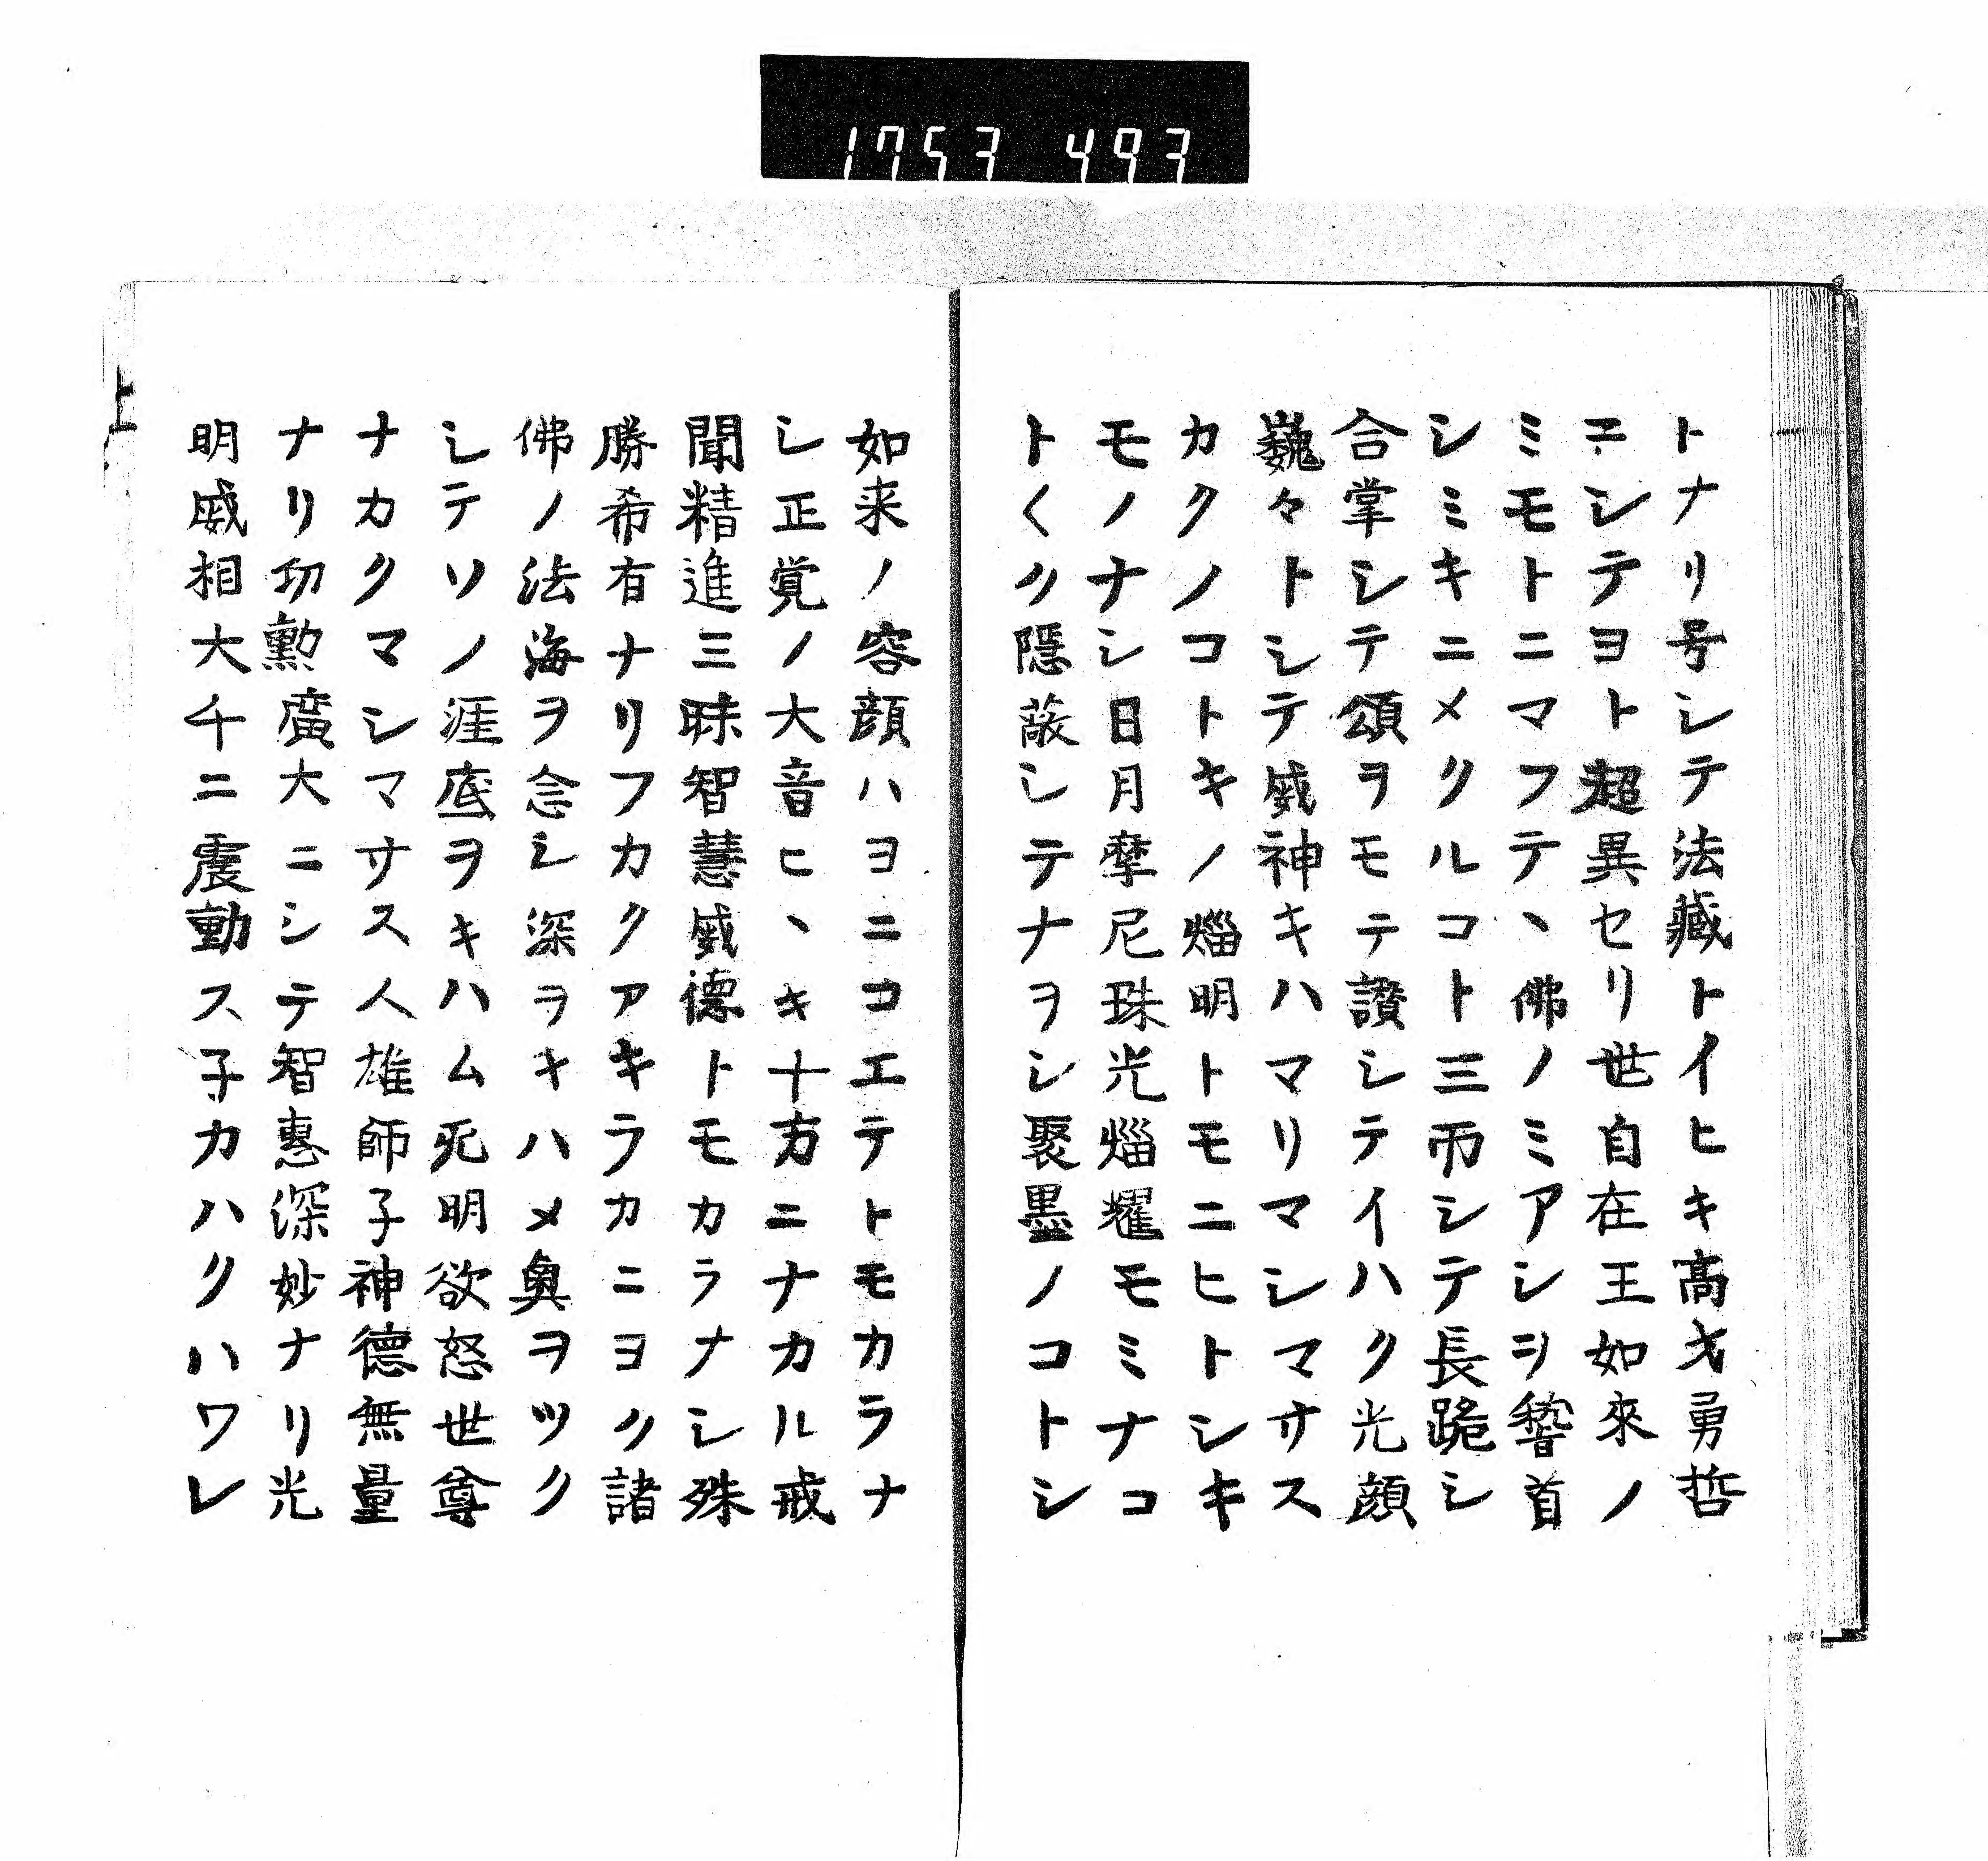 1753 493
トナリ号シテ法藏トイヒキ高才勇哲
ニシテヨト超異セリ世自在王如來ノ
ミモトニマフテヽ佛ノミアシヲ稽首
シミキニメクルコト三帀シテ長跪シ
合掌シテ頌ヲモテ讃シテイハク光顔
巍々トシテ威神キハマリマシマサス
カクノコトキノ㷔明トモニヒトシキ
モノナシ日月摩尼珠光㷔耀モミナコ
トくク隱蔽シテナヲシ聚墨ノコトシ
如来ノ容顔ハヨニコエテトモカラナ
シ正覚ノ大音ヒヽキ十方ニナカル戒
聞精進三昧智慧威德トモカラナシ殊
勝希有ナリフカクアキラカニヨク諸
佛ノ法海ヲ念シ深ヲキハメ奥ヲツク
シテソノ涯底ヲキハム无明欲怒世尊
ナカクマシマサス人雄師子神德無量
ナリ功勲廣大ニシテ智惠深妙ナリ光
明威相大千ニ震動ス子カハクハワレ
上